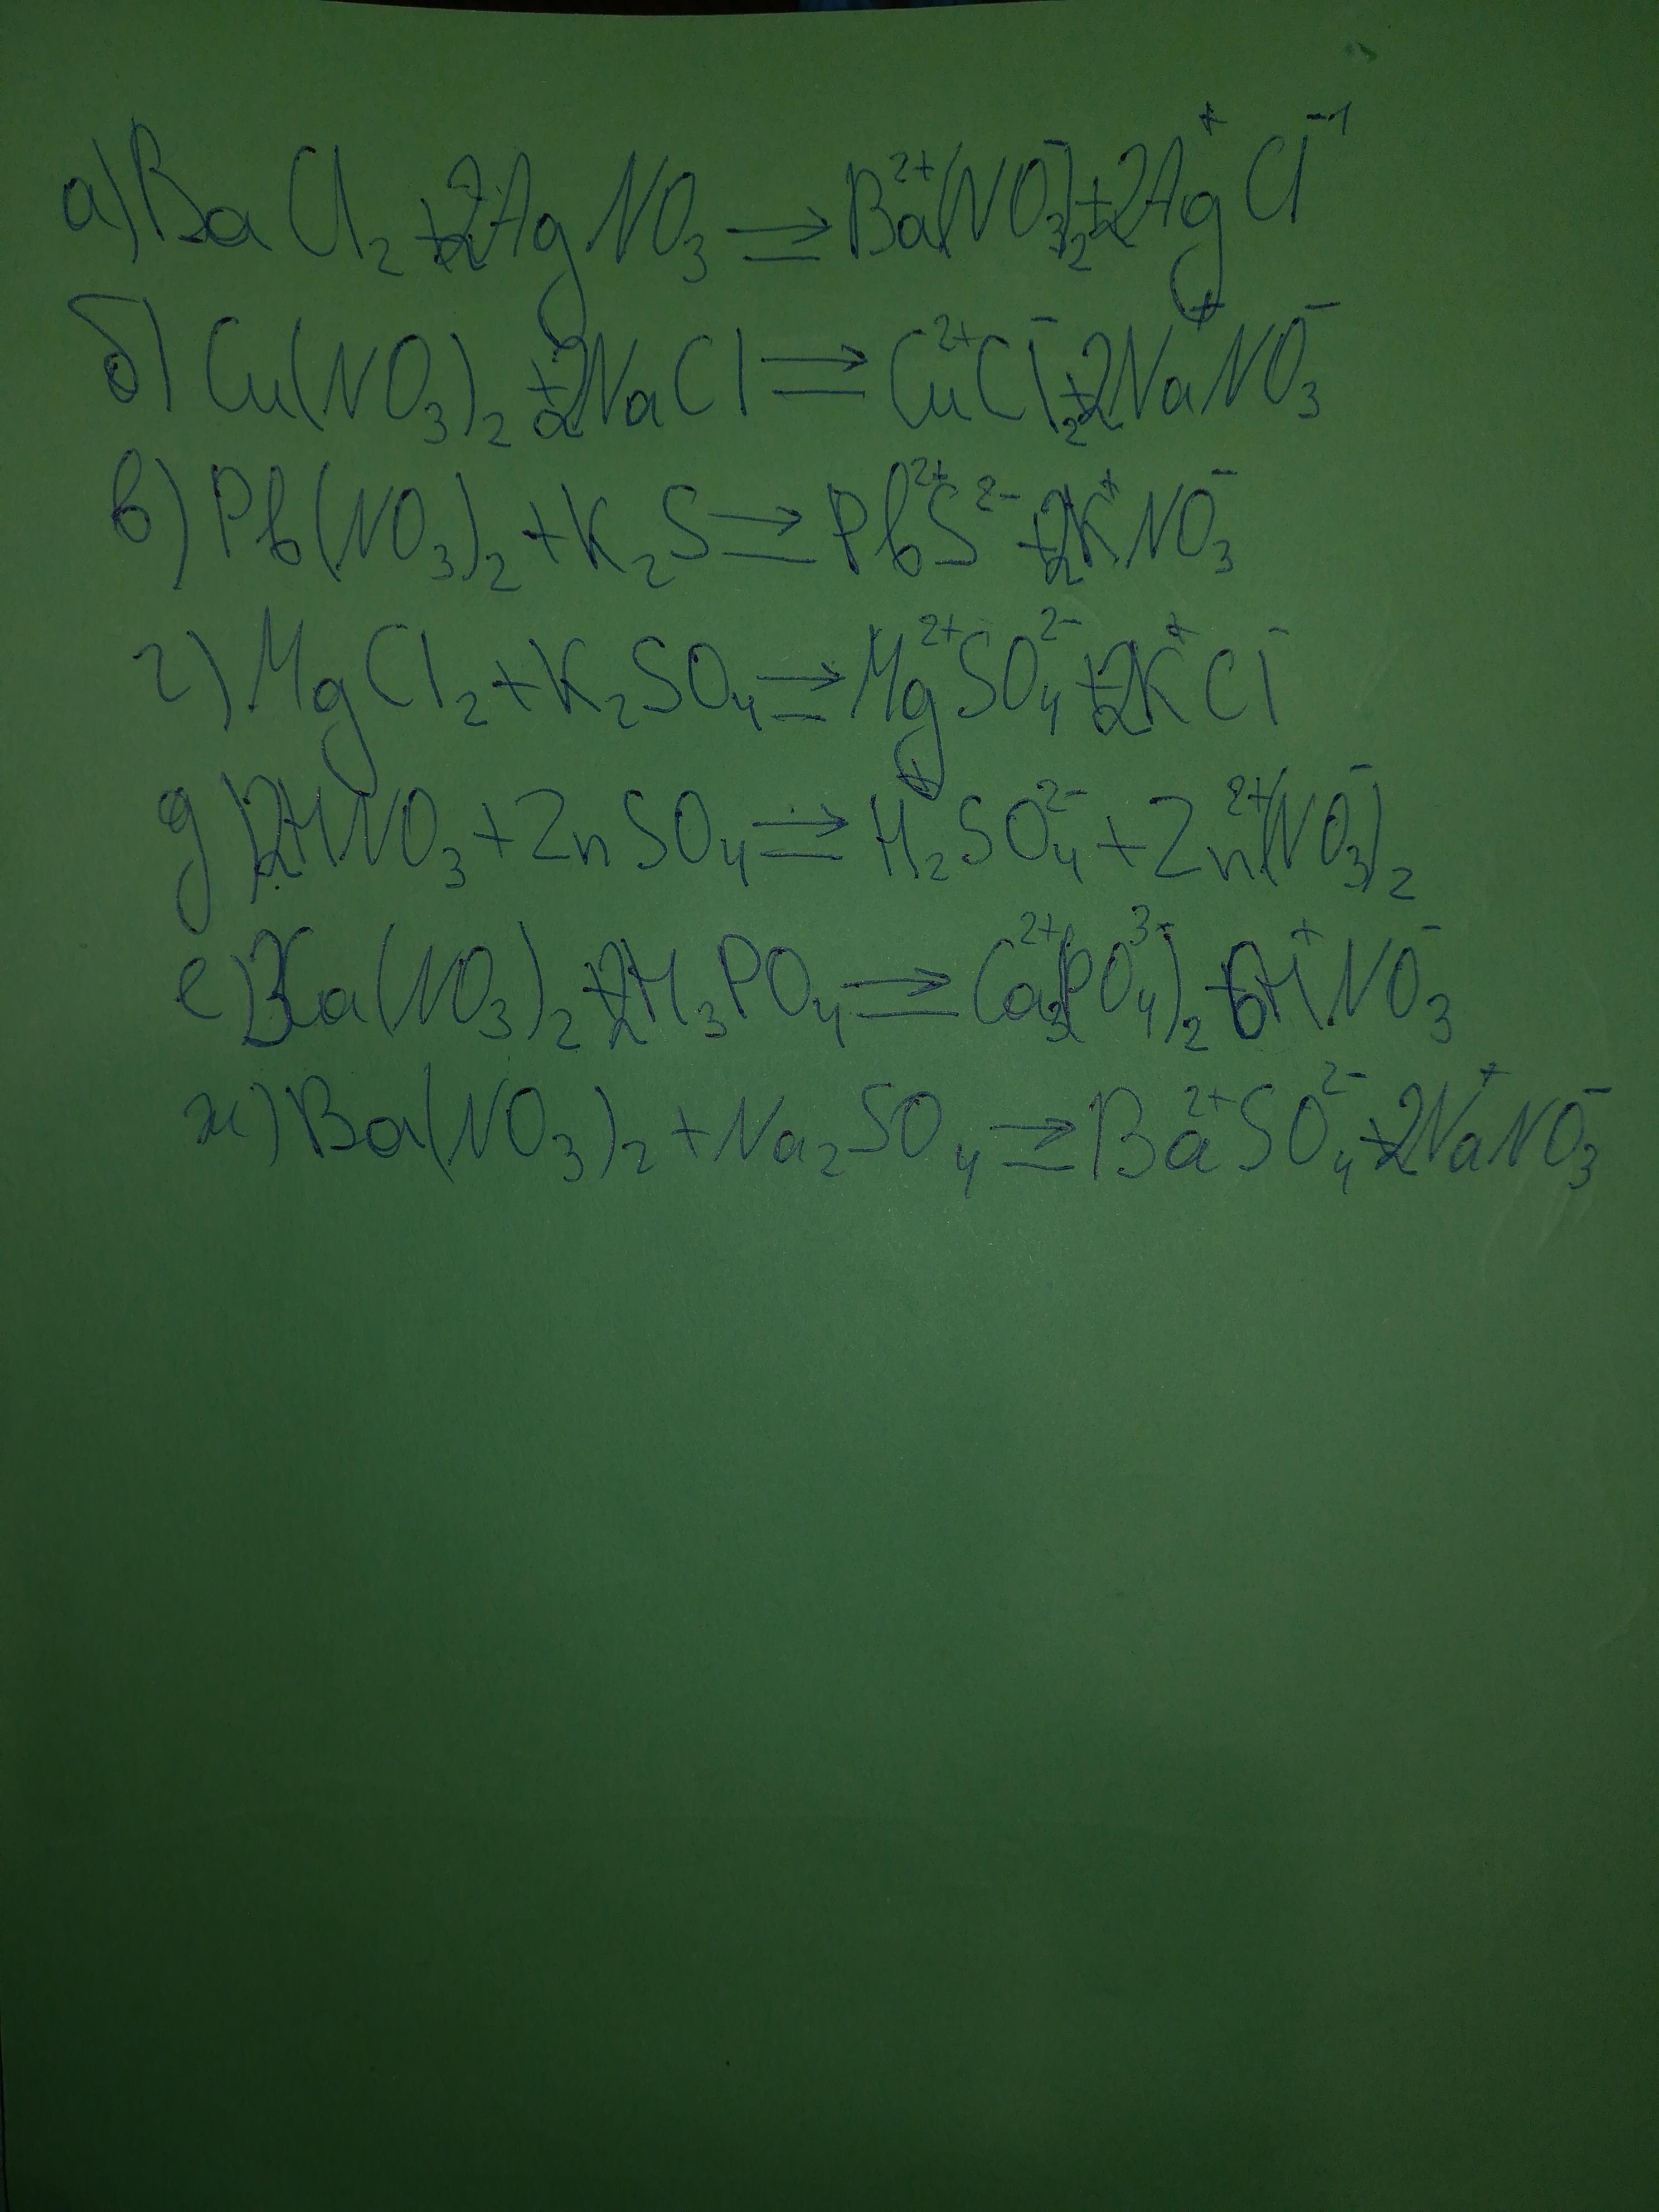 а) BaCl₂ + 2AgNO₃ ⇉ Ba²⁺(NO₃⁻)₂ + 2Ag⁺Cl⁻¹
б) Cu(NO₃)₂ + 2NaCl ⇉ Cu²⁺Cl⁻₂ + 2Na⁺NO₃⁻
в) Pb(NO₃)₂ + K₂S ⇉ Pb²⁺S²⁻ + 2K⁺NO₃⁻
г) MgCl₂ + K₂SO₄ ⇉ Mg²⁺SO₄²⁻ + 2K⁺Cl⁻
д) 2HNO₃ + ZnSO₄ ⇉ H⁺₂SO₄²⁻ + Zn²⁺(NO₃⁻)₂
е) 3Ca(NO₃)₂ + 2H₃PO₄ ⇉ Ca²⁺₃(PO₄³⁻)₂ + 6H⁺NO₃⁻
ж) Ba(NO₃)₂ + Na₂SO₄ ⇉ Ba²⁺SO₄²⁻ + 2Na⁺NO₃⁻